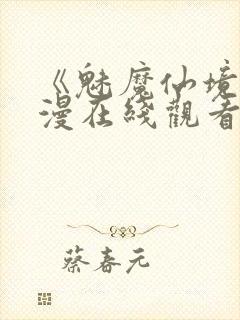 《魅魔仙境
漫在綫觀看
蔡春元